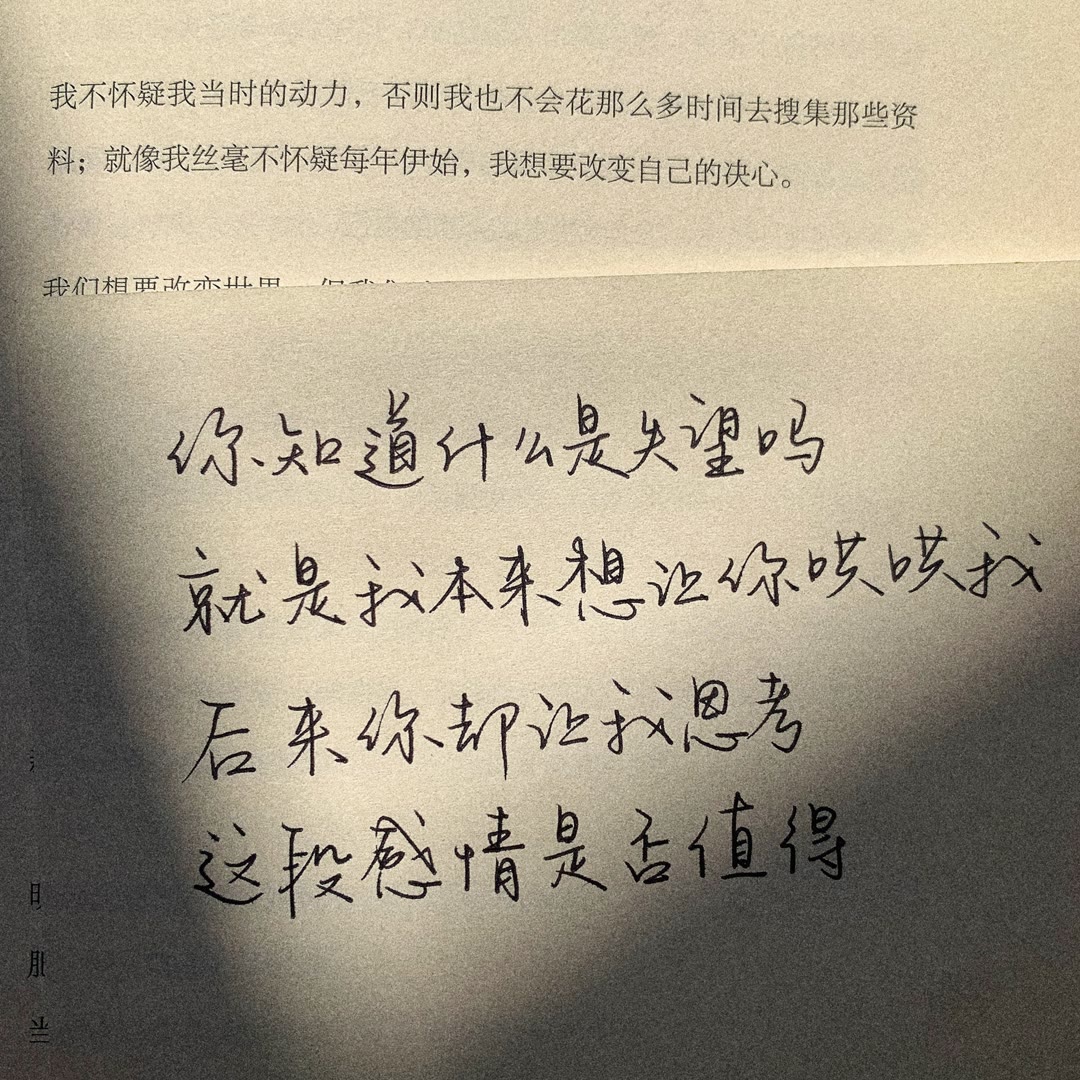 我不怀疑我当时的动力，否则我也不会花那么多时间去搜集那些资
料；就像我丝毫不怀疑每年伊始，我想要改变自己的决心。
我们想要改变世界
你知道什么是失望吗
就是我本来想让你哄哄我
后来你却让我思考
这段感情是否值得